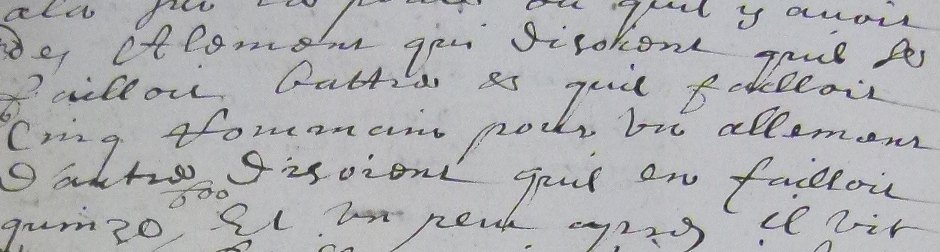 ala sur la porte ou quil y avoit
des Alemant qui disoient quil se
failloit battre et quil failloit
Cinq Rommain pour un allement
D'autre disoient quil en failloit
quinze Et un peu apres il vit